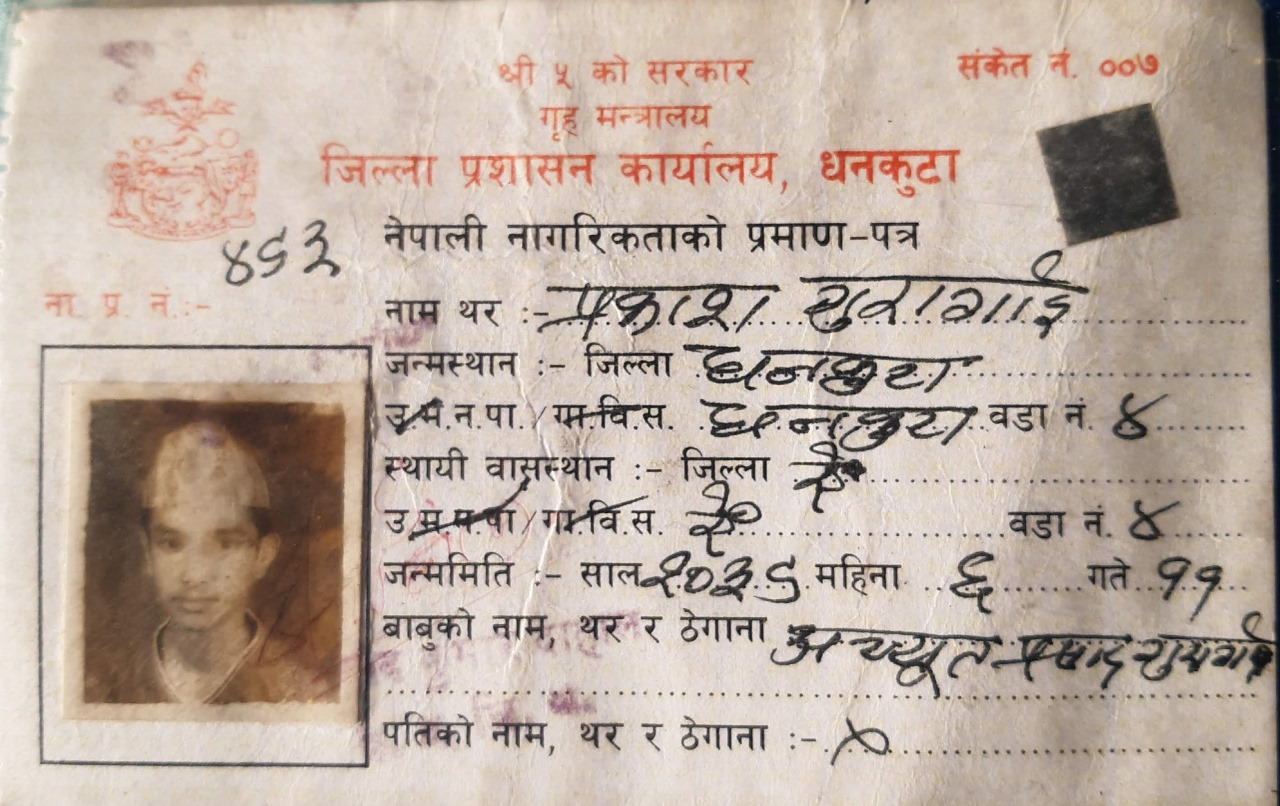 श्री ५ को सरकार
संकेत नं. ००७
गृह मन्त्रालय
जिल्ला प्रशासन कार्यालय, धनकुटा
नेपाली नागरिकताको प्रमाण-पत्र
ना. प्र. नं.:-
नाम थर :- प्रकाश गुरागाई
जन्मस्थान :- जिल्ला धनकुटा
उ.म.न.पा./गा.वि.स. धनकुटा वडा नं. ४
स्थायी वासस्थान :- जिल्ला ऐ
उ.म.न.पा/गा.वि.स. ऐ वडा नं. ४
जन्ममिति :- साल २०३९ महिना ६ गते ११
बाबुको नाम, थर र ठेगाना अच्यूत प्रसाद गुरागाई
पतिको नाम, थर र ठेगाना :- ×